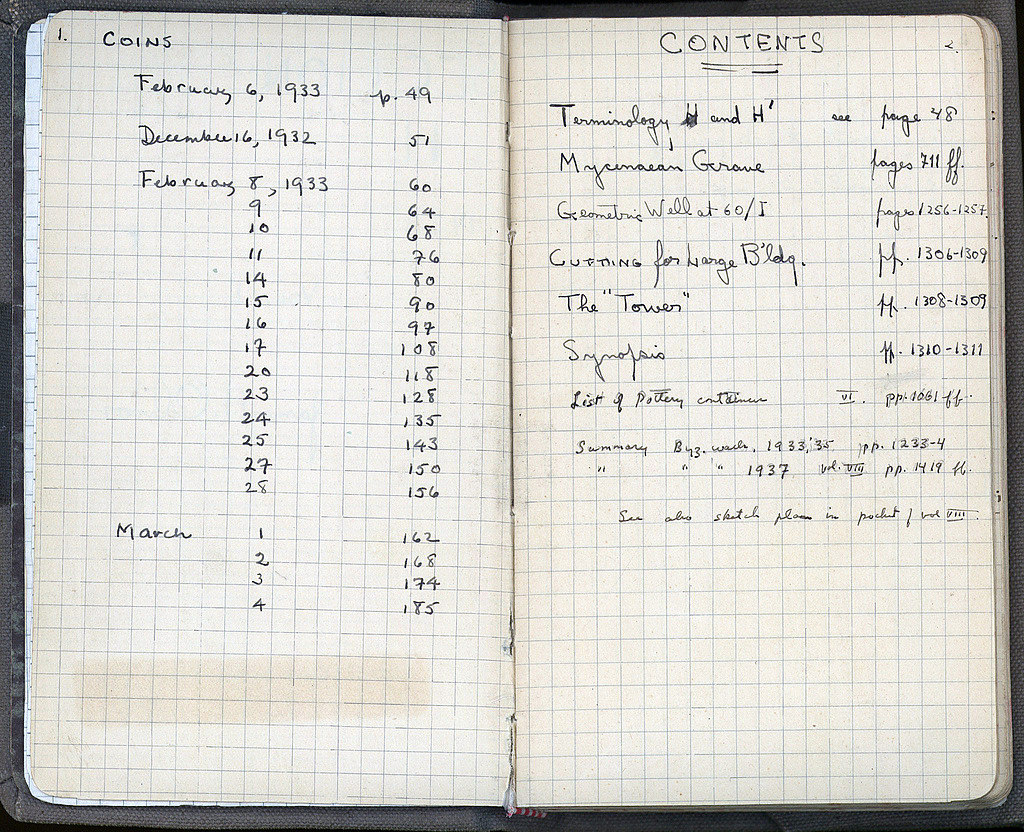 1. COINS
February 6, 1933 p. 49
December 16, 1932 51
February 8, 1933 60
9 64
10 68
11 76
14 80
15 90
16 97
17 108
20 118
23 128
24 135
25 143
27 150
28 156
March 1 162
2 168
3 174
4 185
2.
CONTENTS
Terminology H and H' see page 48
Mycenaean Grave pages 711 ff.
Geometric Well at 60/I pages 1256-1257.
CUTTING for Large B'ldg. pp. 1306-1309
The "Tower" pp. 1308-1309
Synopsis pp. 1310-1311
List of Pottery containers VI. pp. 1061 ff.
Summary Byz. 1933, '35 pp. 1233-4
" " " 1937 vol. VIII pp. 1419 ff.
See also sketch plans in pocket of vol VIII.